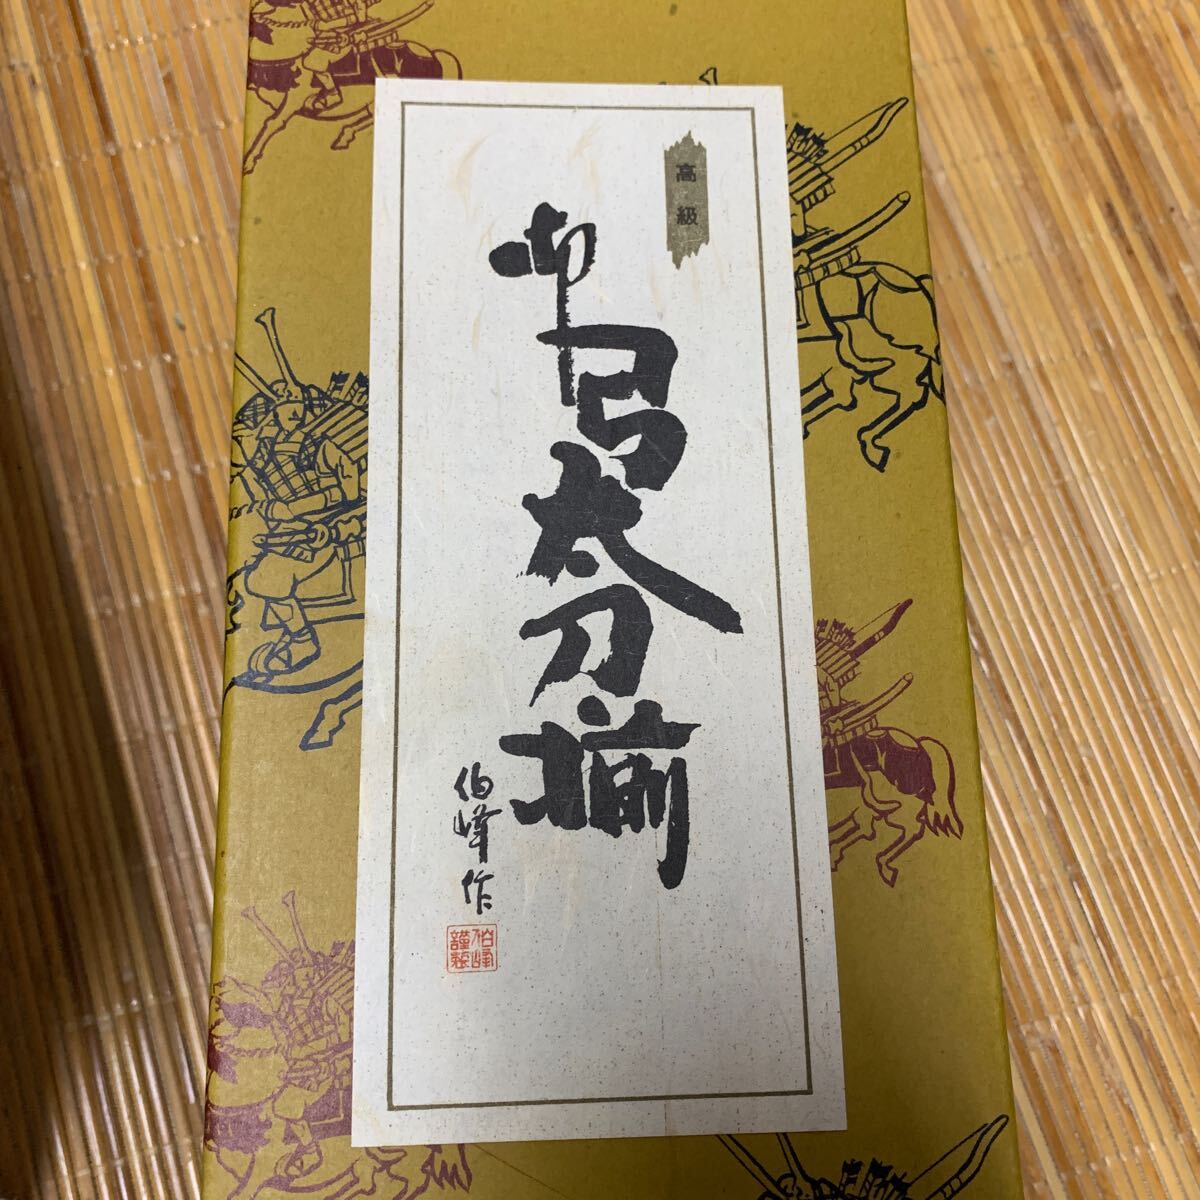 高級
御弓太刀揃
伯峰作
伯峰
謹製